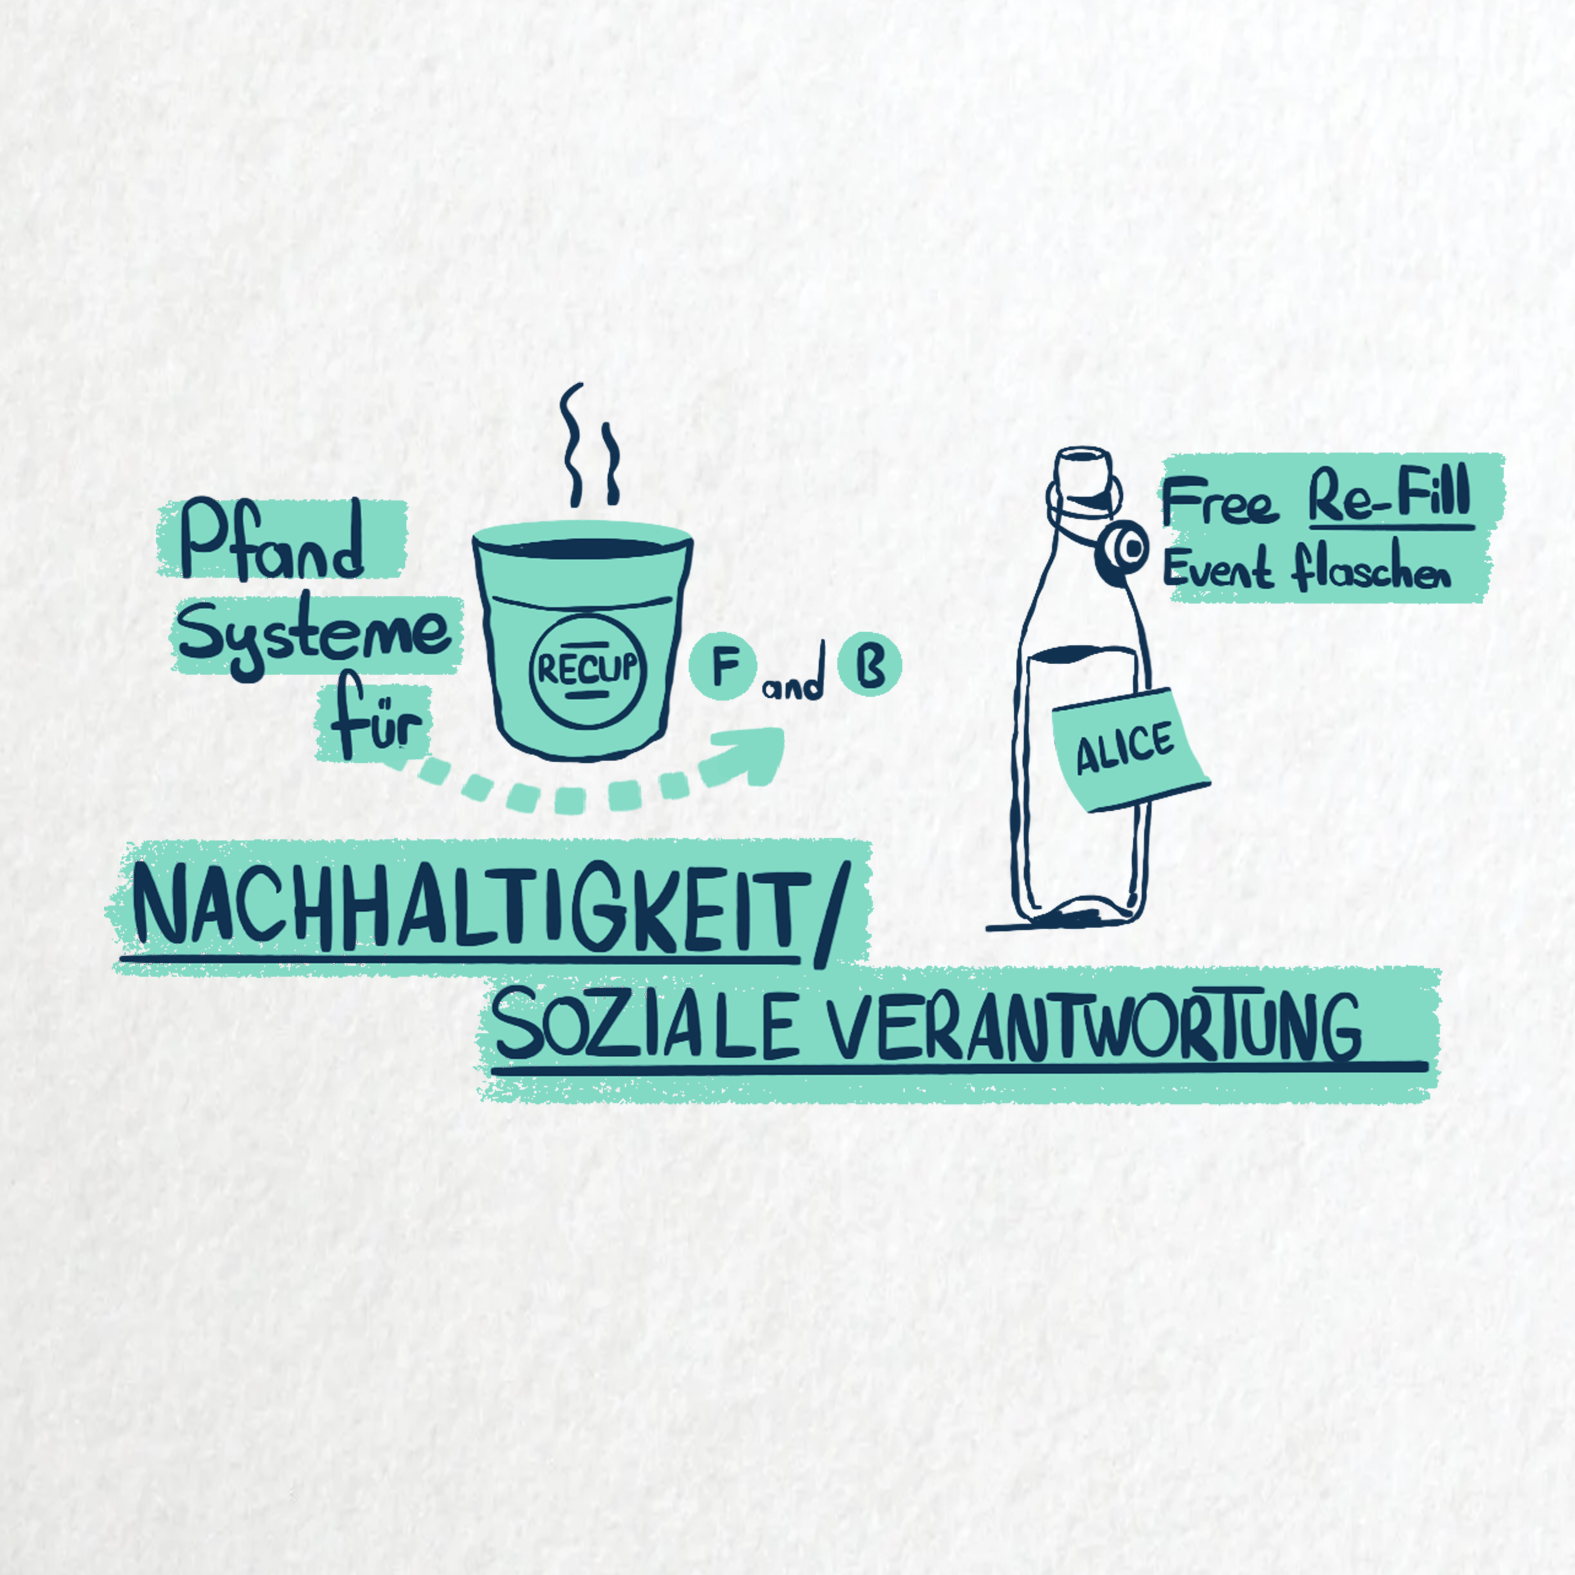 Pfand
Systeme
für
RECUP
F and B
Free Re-Fill
Event flaschen
ALICE
NACHHALTIGKEIT/
SOZIALE VERANTWORTUNG